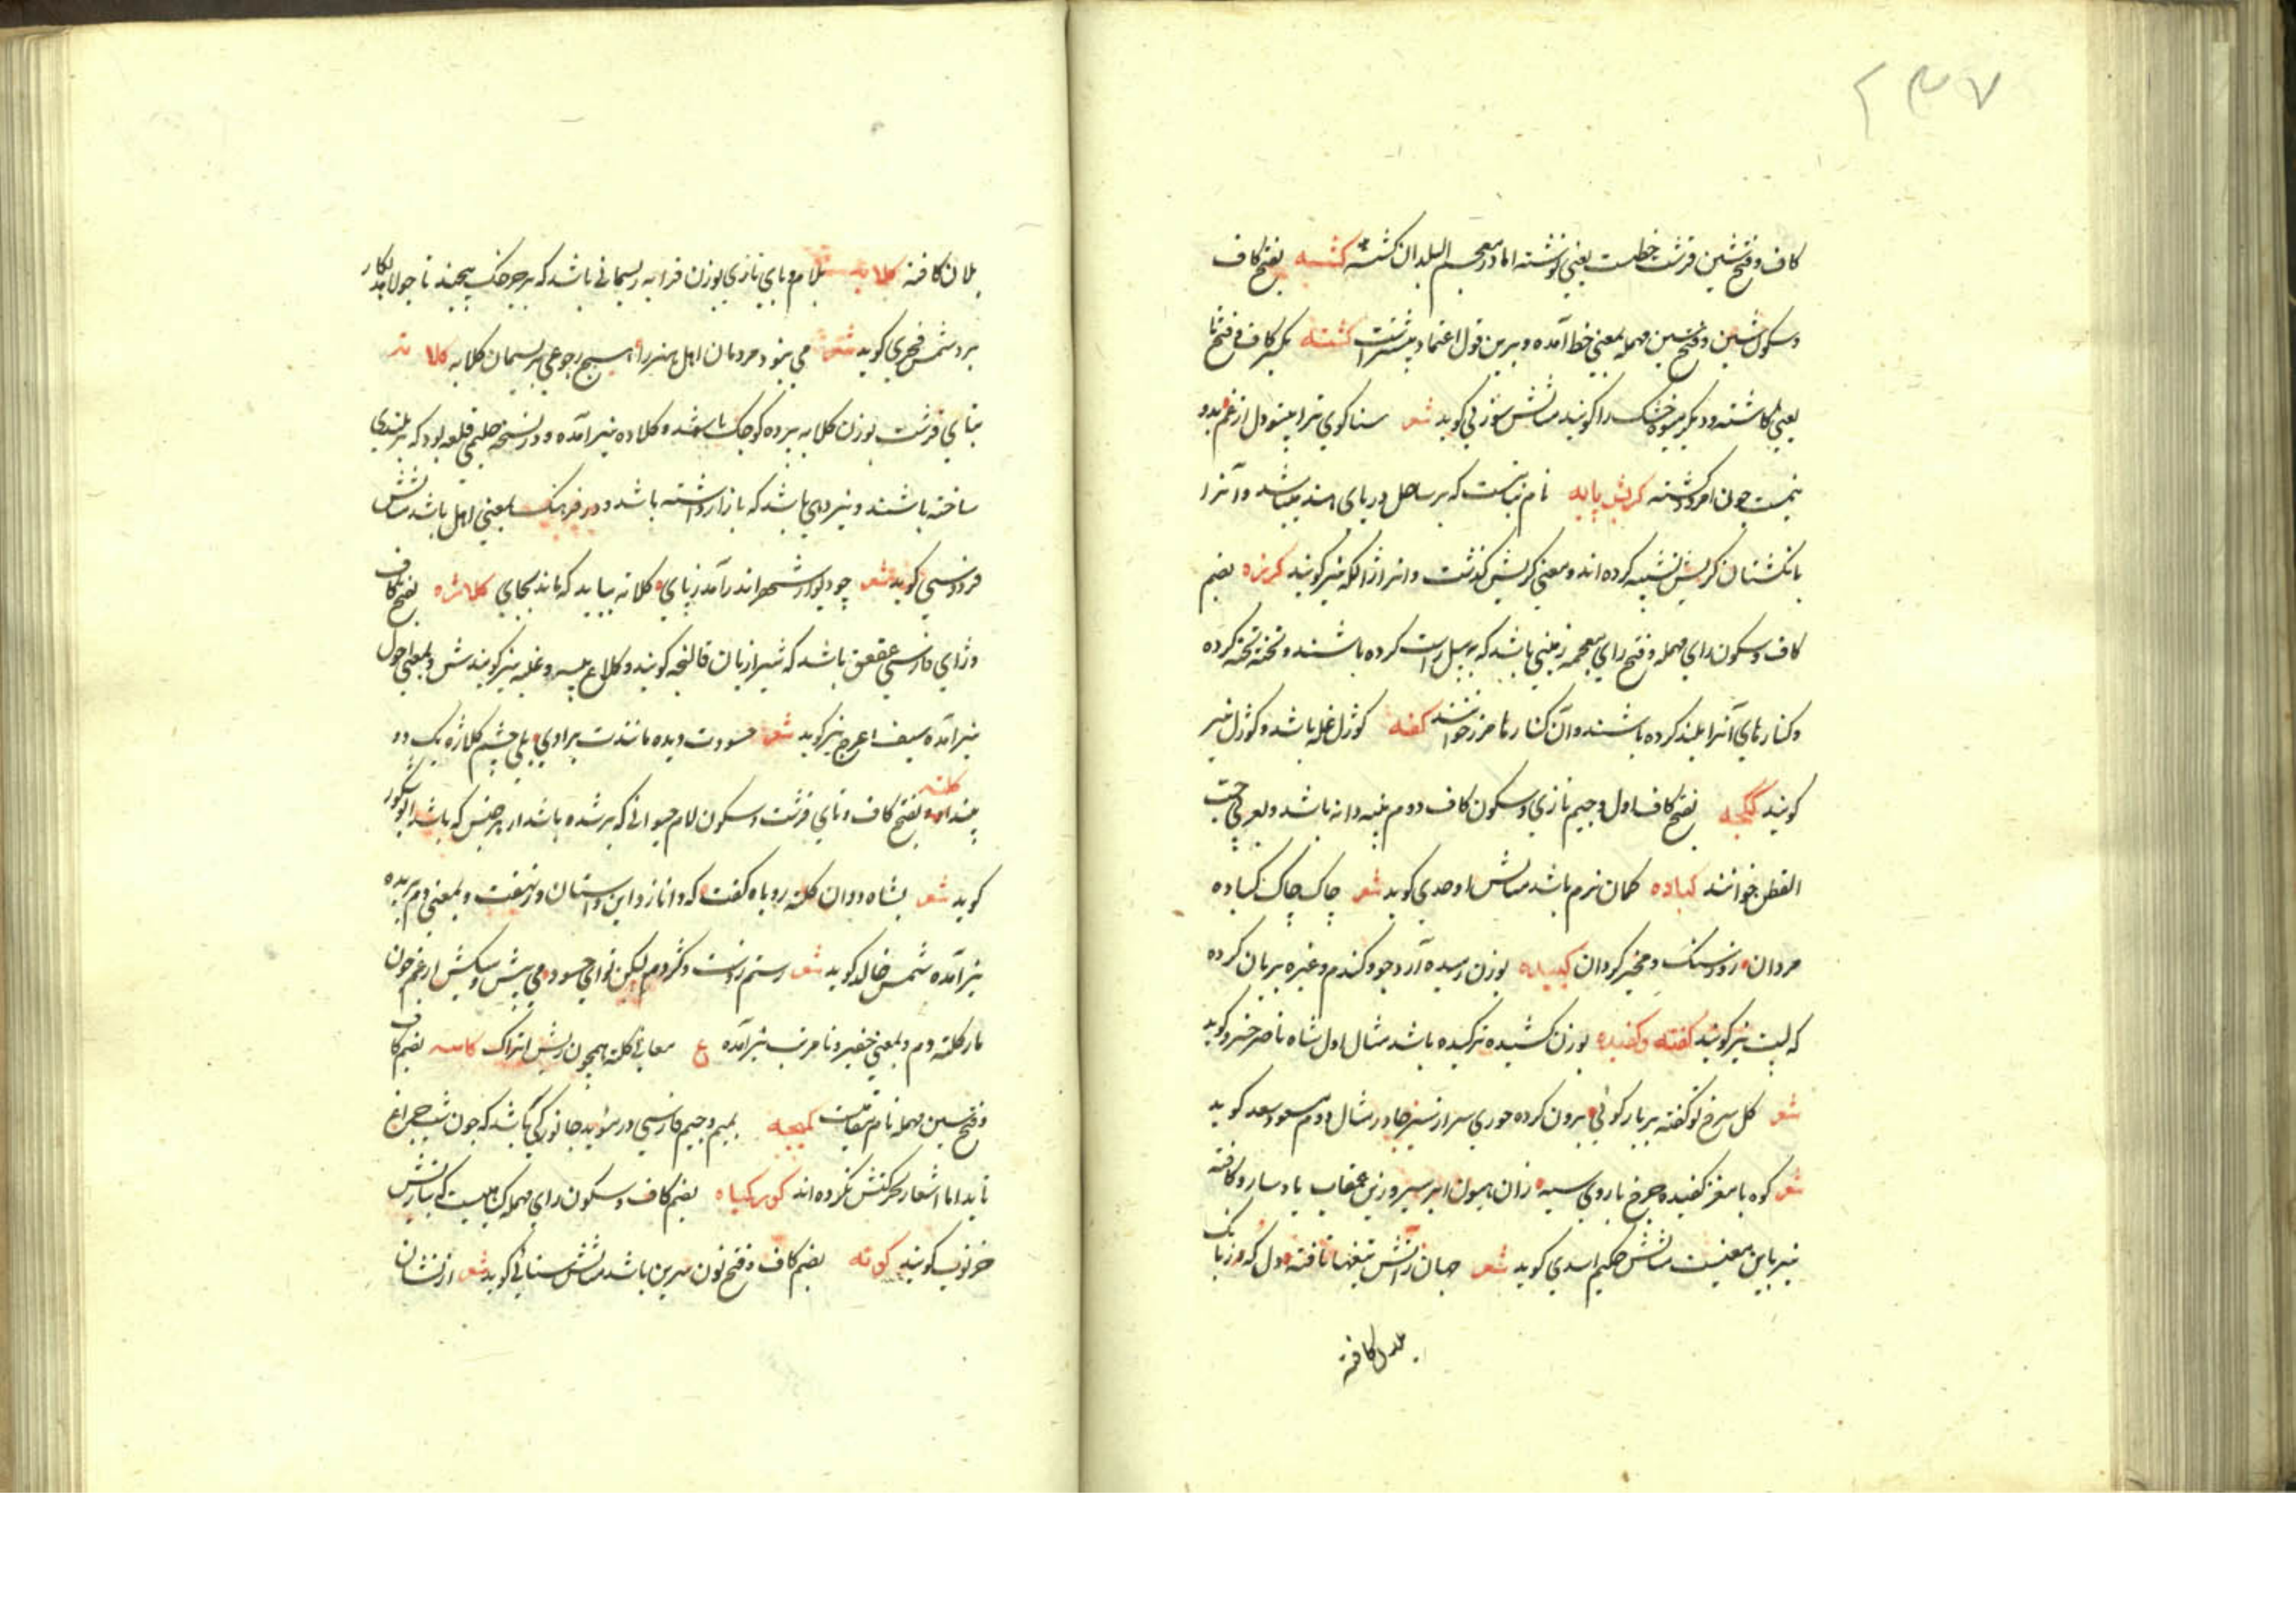 ۲۳۷
کاف و فتح شین قرشت خطیست یعنی نوشته اما در معجم البلدان کشته کشسه بفتح کاف
و سکون شین و فتح سین مهمله بمعنی خط آمده و برین قول اعتماد بیشترست کشته بکسر کاف و فتح تا
یعنی کاشته و دیگر میوه خشک را کویند مثالش سوزنی کوید شعر سنا کوی ترا بیند دل از غم بدو
نیمست چون امرود کشته کربش پایه نام نباتیست که بر ساحل دریای هند میباشد و آنرا
بانکشتان کربش تشبیه کرده اند و معنی کربش کذشت و انرا نیز کویند کرزه بضم
کاف و سکون رای مهمله و فتح زای معجمه زمینی باشد که به بیل راست کرده باشند و تخته تخته کرده
و کنارهای آنرا بلند کرده باشند و آن کنارها مرز خوانند کفه کوزل غله باشد و کوزل نیز
کویند ککجه بفتح کاف اول و جیم تازی و سکون کاف دوم پنبه دانه باشد و بعربی حب
القطن خوانند کباده کمان نرم باشد مثالش اوحدی کوید شعر چاک چاک کباده
مردان روز سنک و مخیر کردان کبیده بوزن رسیده آرد جو و کندم و غیره بریان کرده
که لیت نیز کویند کفته و کفیده بوزن کشیده ترکیده باشد مثال اول شاه ناصر خسرو کوید
شعر کل سرخ نو کفته بر بار کوئی برون کرده حوری سر از سبز چادر مثال دوم مسعود سعد کوید
شعر کوه با مغز کفیده چرخ با روی سیه زان هیون ابر سیر و زین عقاب باد سار و کافته
نیز باین معنیست مثالش حکیم اسدی کوید شعر جهان ز آتش تیغها تافته دل که ز بانک
یلان کافته
یلان کافته کلابه بلام و بای تازی بوزن قرابه ریسمانی باشد که بر چرخک پیچند تا جولاهه بکار
برد شمس فخری کوید شعر می نبود مردمان اهل هنر را هیچ رجوعی بریسمان کلابه کلاته
بتای قرشت بوزن کلابه ده کوچک باشد و کلاده نیز آمده و در نسخه حلیمی قلعه بود که بر بلندی
ساخته باشند و نیز دهی باشد که بازار داشته باشد و در فرهنک بمعنی اهل باشد مثالش
فردوسی کوید شعر چو دیوار شهر اندر آمد ز پای کلاته نباید که ماند بجای کلاژه بفتح کاف
و ژای فارسی عقعق باشد که شیرازیان قالنجه کویند و کلاغ پیسه و غلبه نیز کویندش و بمعنی احول
نیز آمده سیف اعرج نیز کوید شعر حسودت دیده مانندت برادی بلی چشم کلاژه یک دو
بیند کلته بفتح کاف و تای قرشت و سکون لام حیوانی که پیر شده باشد از هر جنس که باشد ابوشکور
کوید شعر بشاه ددان کلته روباه کفت که دانا زد این داستان در نهفت و بمعنی دم بریده
نیز آمده شمس خالد کوید شعر رستم زدست و کژدم لیکن نوای حسود می پیش و سکش از غم چون
مار کلته دم و بمعنی حقیر و نامرتب نیز آمده ع معانی کلته همچون ریش اتراک کاسه بضم کاف
و فتح سین مهمله نام مقامیست کمیجه بمیم و جیم فارسی در مؤید جانورکی باشد که چون شب چراغ
تابد اما اشعار بحرکتش نکرده اند کورکیاه بضم کاف و سکون رای مهمله کیاهیست که بتازیش
خرنوب کویند کونه بضم کاف و فتح نون سرین باشد مثالش سنائی کوید شعر از نشان